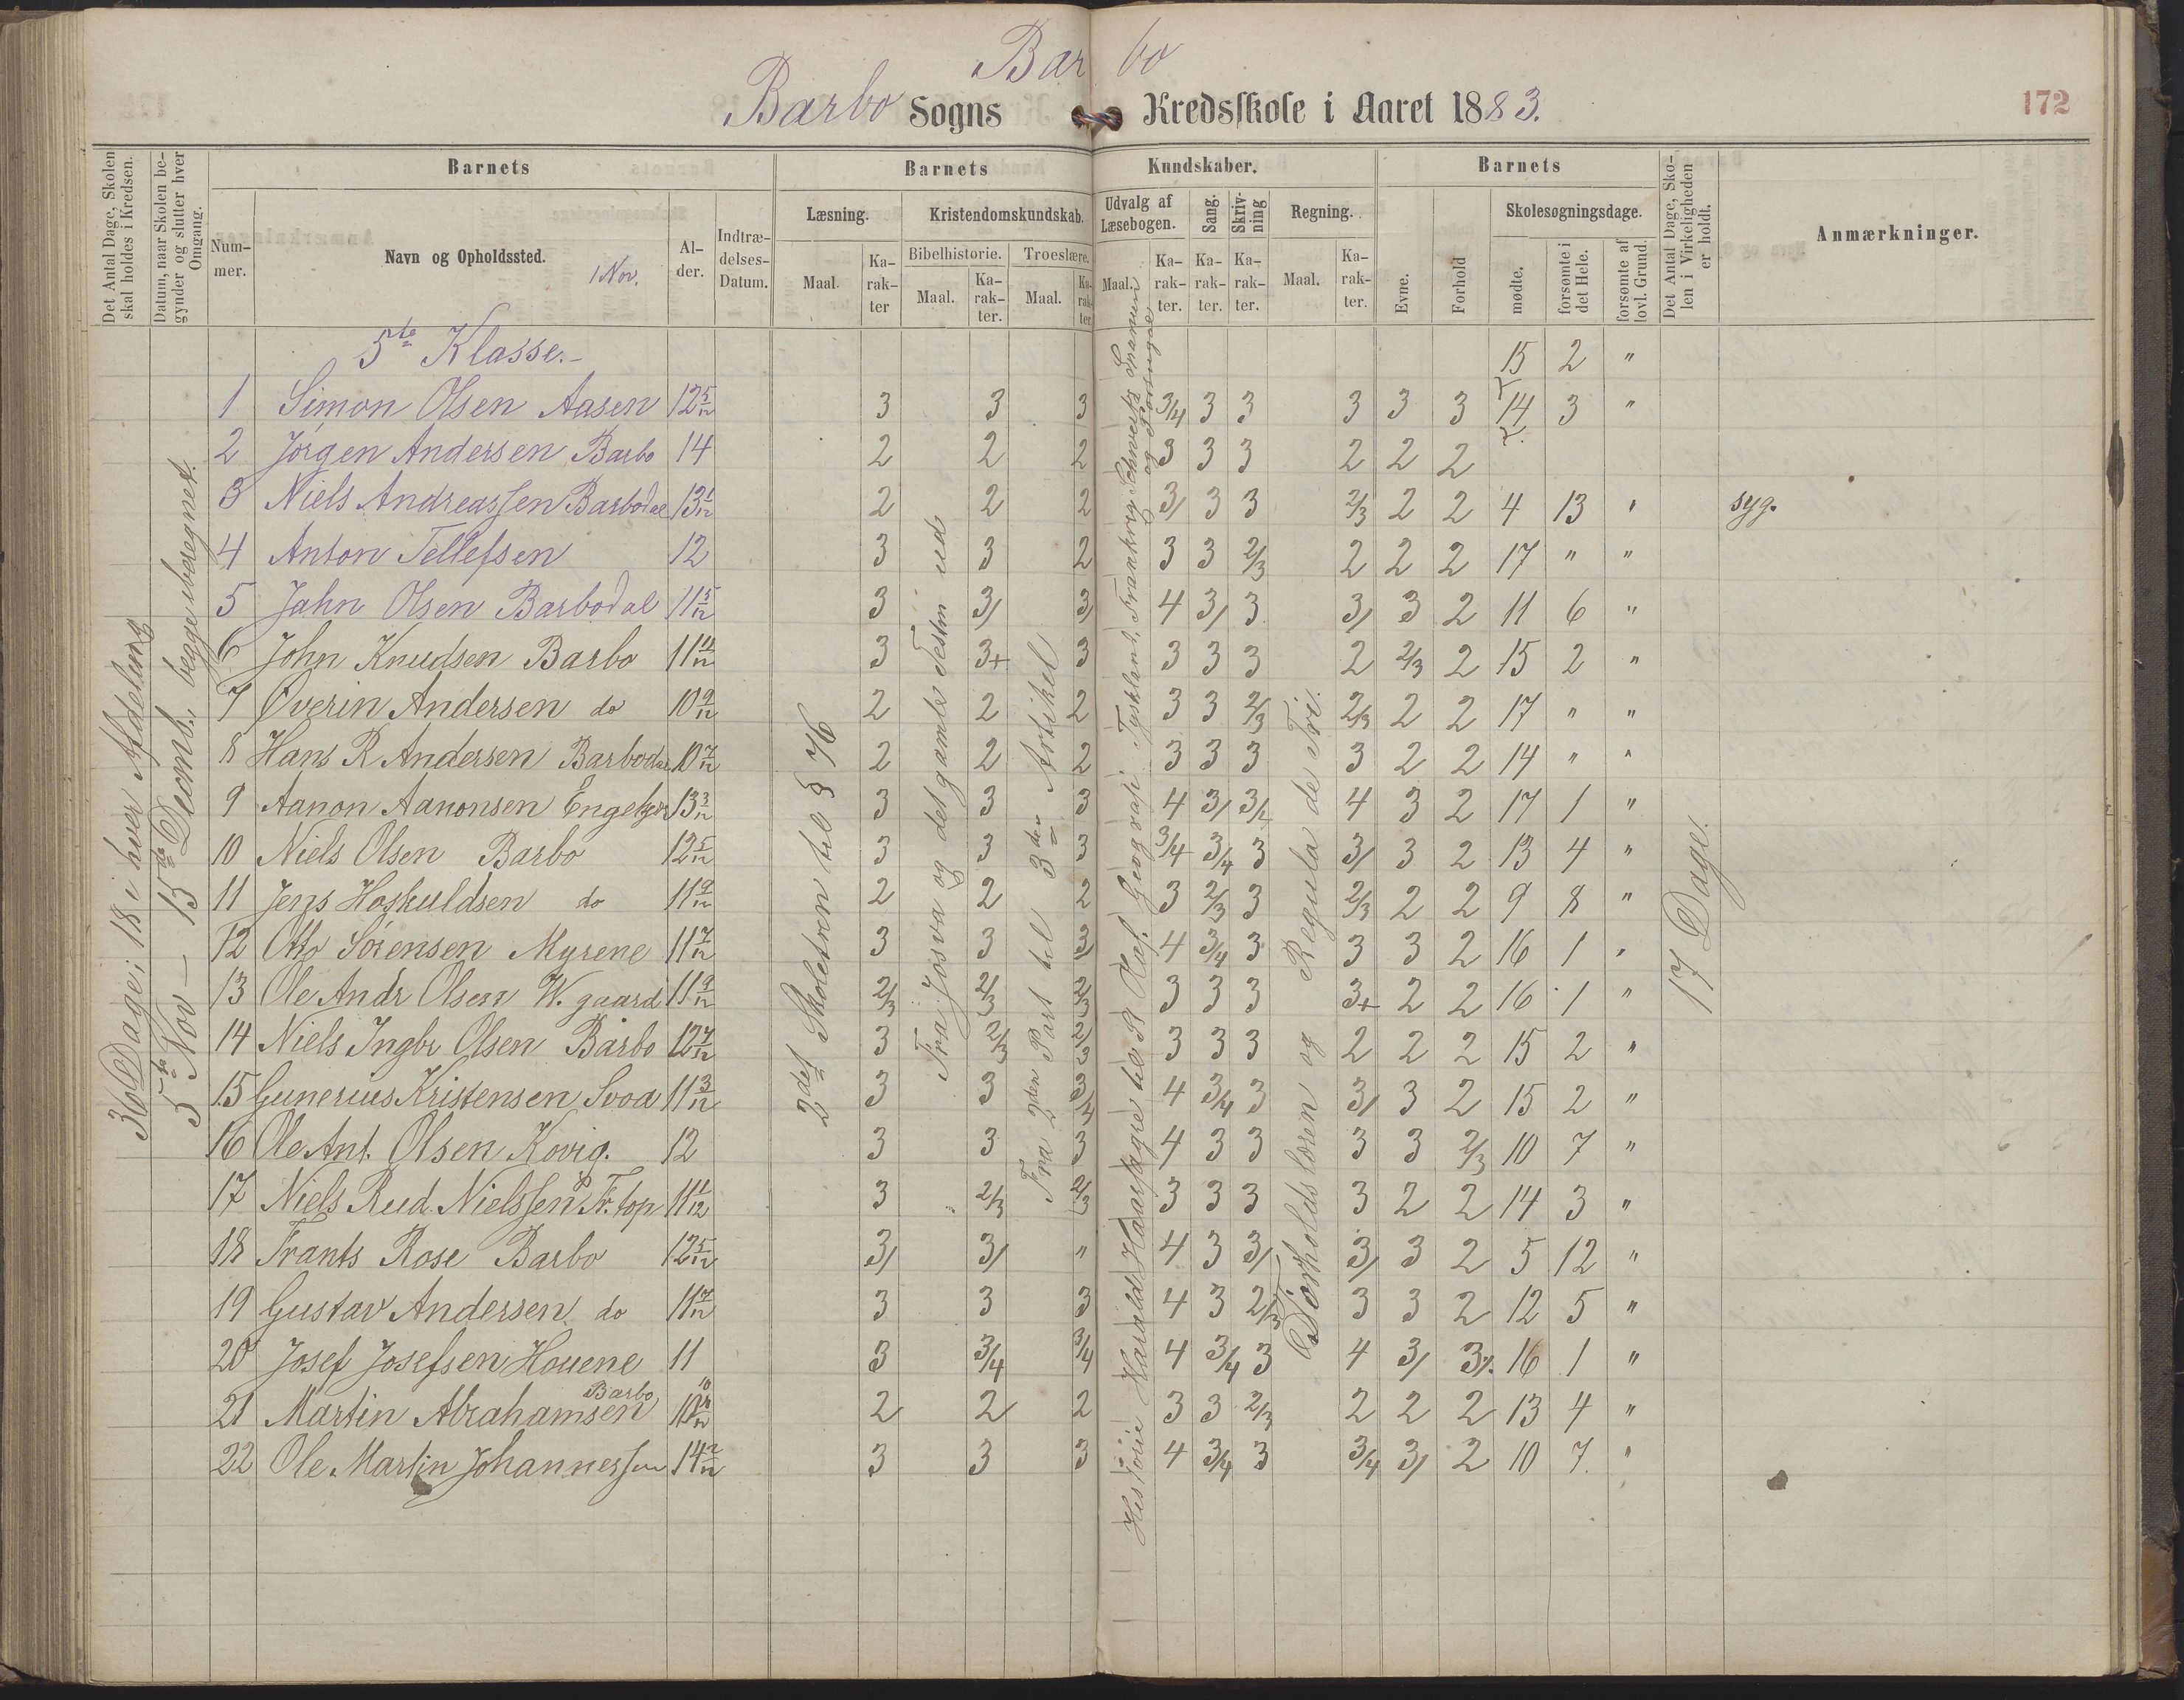 Bar bo
Barbo Sogns Kredsskole i Aaret 1883.
172
Det Antal Dage, Skolen skal holdes i Kredsen.
Datum, naar Skolen begynder og slutter hver Omgang.
Barnets
Num-mer.
Navn og Opholdssted.
1 Nov.
Al-der.
Indtræ-delses-Datum.
Barnets Kundskaber.
Læsning.
Maal.
Ka-rak-ter
Kristendomskundskab.
Bibelhistorie.
Maal.
Ka-rak-ter.
Troeslære.
Maal.
Ka-rak-ter
Udvalg af Læsebogen.
Maal.
Ka-rak-ter.
Sang.
Ka-rak-ter.
Skriv-ning
Ka-rak-ter.
Regning.
Maal.
Ka-rak-ter.
Barnets
Evne.
Forhold
Skolesøgningsdage.
mødte.
forsømte i det Hele.
forsømte af lovl. Grund.
Det Antal Dage, Skolen i Virkeligheden er holdt.
Anmærkninger.
36 Dage, 18 i hver Afdeling
5te Nov – 15de Decmb., begge iberegnet.
2det Skoletrin til § 76
Fra Josva og det gamle Testm ud
Fra 2den Part til 3die Artikel
Historie Harald Haarfagre til St Olaf. Geografi Tyskland, Frankrig Schveits Spanien og Portugal
Forholdsloren og Regula de Tri.
17 Dage.
5te Klasse.- 15 2 "
1 Simon Olsen Aasen 12 5/12 3 3 3 3/4 3 3 3 3 3 14 3 "
2 Jørgen Andersen Barbo 14 2 2 2 3 3 3 2 2 2
3 Niels Andreassen Barbodal 13 1/12 2 2 2 3/ 3 3 2/3 2 2 4 13 " syg.
4 Anton Tellefsen 12 3 3 2 3 3 2/3 2 2 2 17 " "
5 Jahn Olsen Barbodal 11 5/12 3 3/ 3/ 4 3/ 3 3/ 3 2 11 6 "
6 John Knudsen Barbo 11 4/12 3 3+ 3 3 3 3 2 2/3 2 15 2 "
7 Øverin Andersen do 10 9/12 2 2 2 3 3 2/3 2/3 2 2 17 " "
8 Hans R Andersen Barbodal 10 7/12 2 2 2 3 3 3 3 2 2 14 " "
9 Aanon Aanonsen 13 3/12 3 3 3 4 3/ 3/ 4 3 2 17 1 "
10 Niels Olsen Barbo 12 5/12 3 3 3 3/4 3/4 3 3/ 3 2 13 4 "
11 Jens Hoskuldsen do 11 9/12 2 2 2 3 2/3 3 2/3 2 2 9 8 "
12 Otto Sørensen Myrene 11 7/12 3 3 3/ 4 3/4 3 3 3 2 16 1 "
13 Ole Andr Olsen W. gaard 11 9/12 2/3 2/3 2/3 3 3 3 3+ 2 2 16 1 "
14 Niels Ingbr Olsen Barbo 12 7/12 3 2/3 2/3 3 3 3 2 2 2 15 2 "
15 Gunerius Kristensen Svoa 11 3/12 3 3 3/4 4 3/4 3 3/ 3 2 15 2 "
16 Ole Ant. Olsen Kovig. 12 3 3 3 4 3 3 3 3 2/3 10 7 "
17 Niels Rud Nielssen Fr. top 11 1/12 3 2/3 2/3 3 3 3 3 2 2 14 3 "
18 Frants Rose Barbo 12 5/12 3/ 3/ " 4 3 3/ 3/ 3 2 5 12 "
19 Gustav Andersen do 11 7/12 3 3 3 4 3 2/3 3 3 2 12 5 "
20 Josef Josefsen Houene 11 3 3/4 3/4 4 3/4 3 4 3/ 3/. 16 1 "
21 Martin Abrahamsen Barbo 10 10/12 2 2 2 3 3 2/3 2 2 2 13 4 "
22 Ole Martin Johannessen 14 2/12 3 3 3 4 3/4 3 3/4 3/ 2 10 7. "